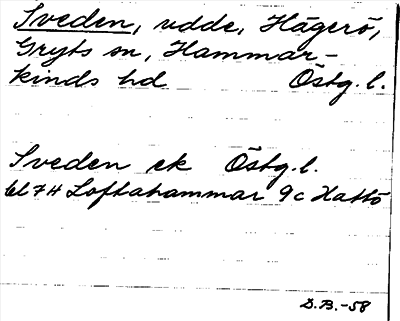 Sveden, udde, Hägerö,
Gryts sn, Hammar-
kinds hd Östg. l.
Sveden ek Östg. l.
bl 7H Loftahammar 9c Hattö
D.B.-58